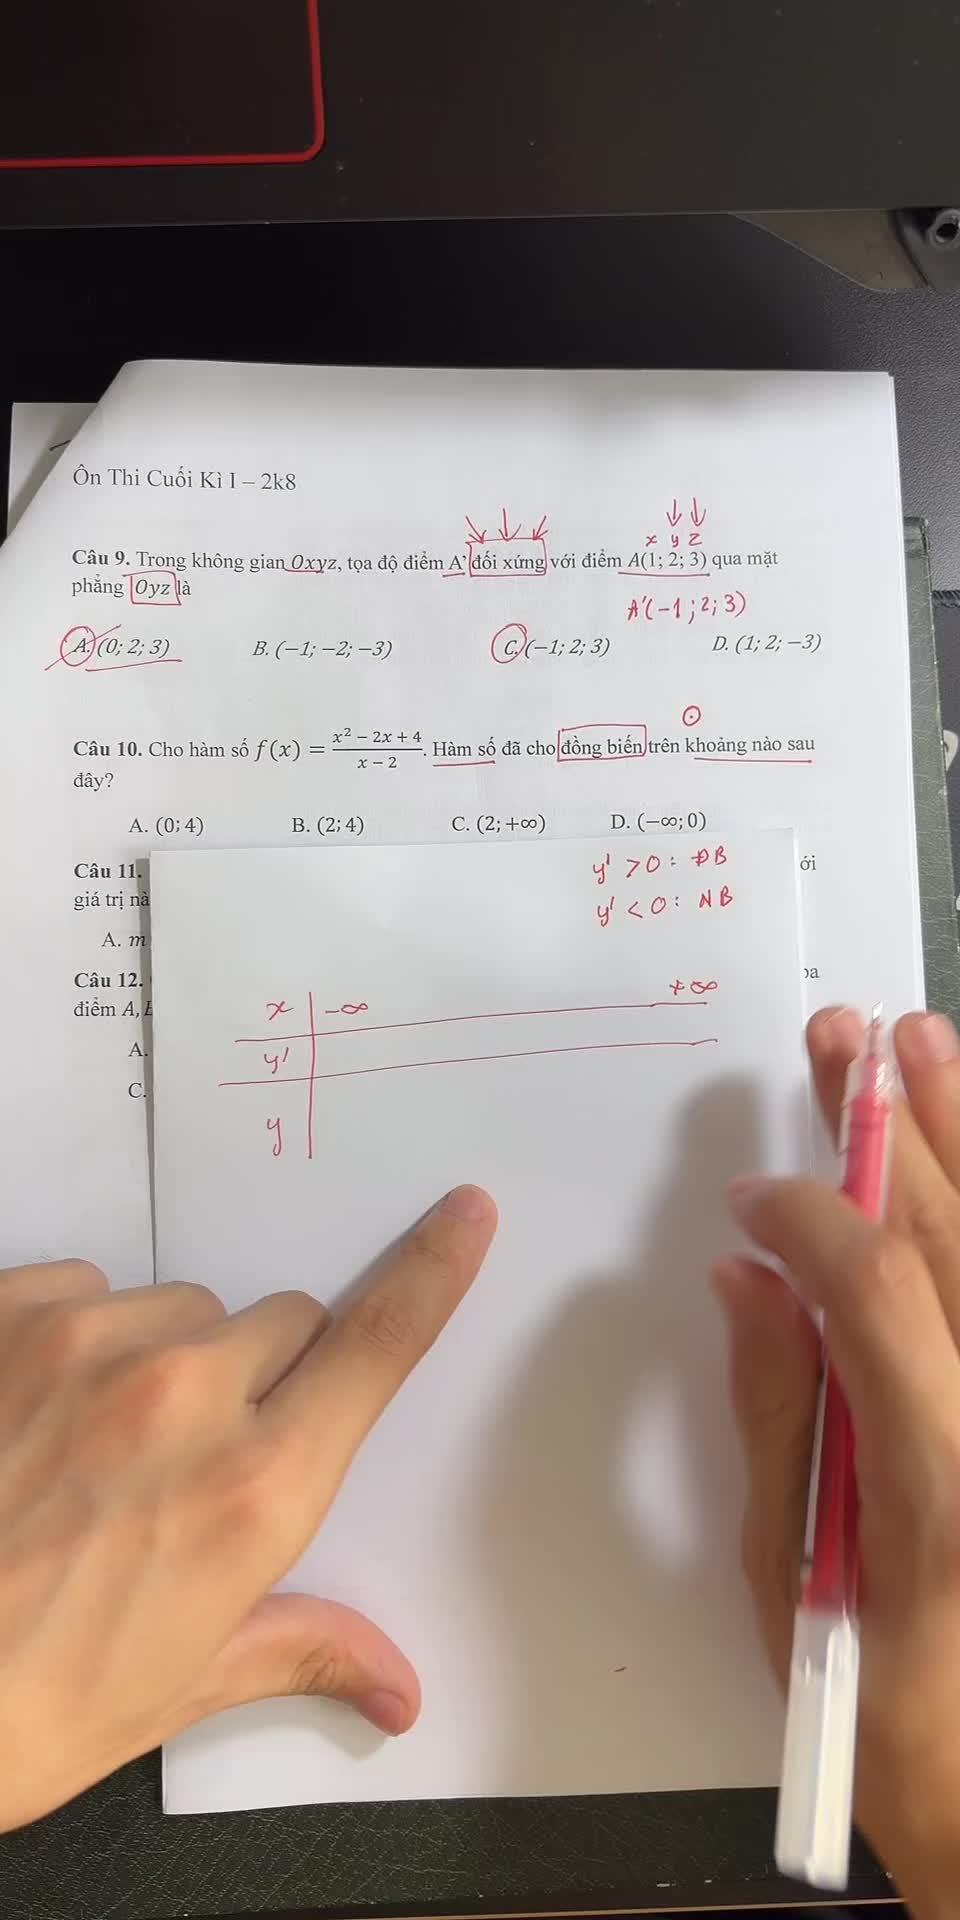 Ôn Thi Cuối Kì I – 2k8
x y z
Câu 9. Trong không gian Oxyz, tọa độ điểm A’ đối xứng với điểm A(1; 2; 3) qua mặt
phẳng Oyz là
A'(-1; 2; 3)
A. (0; 2; 3) B. (−1; −2; −3) C. (−1; 2; 3) D. (1; 2; −3)
Câu 10. Cho hàm số f(x) = x² − 2x + 4 / x − 2. Hàm số đã cho đồng biến trên khoảng nào sau
đây?
A. (0; 4) B. (2; 4) C. (2; +∞) D. (−∞; 0)
y' > 0 : ĐB
y' < 0 : NB
Câu 11. ới
giá trị nà
A. m
Câu 12.
điểm A,
A.
C.
x -∞ +∞
y'
y